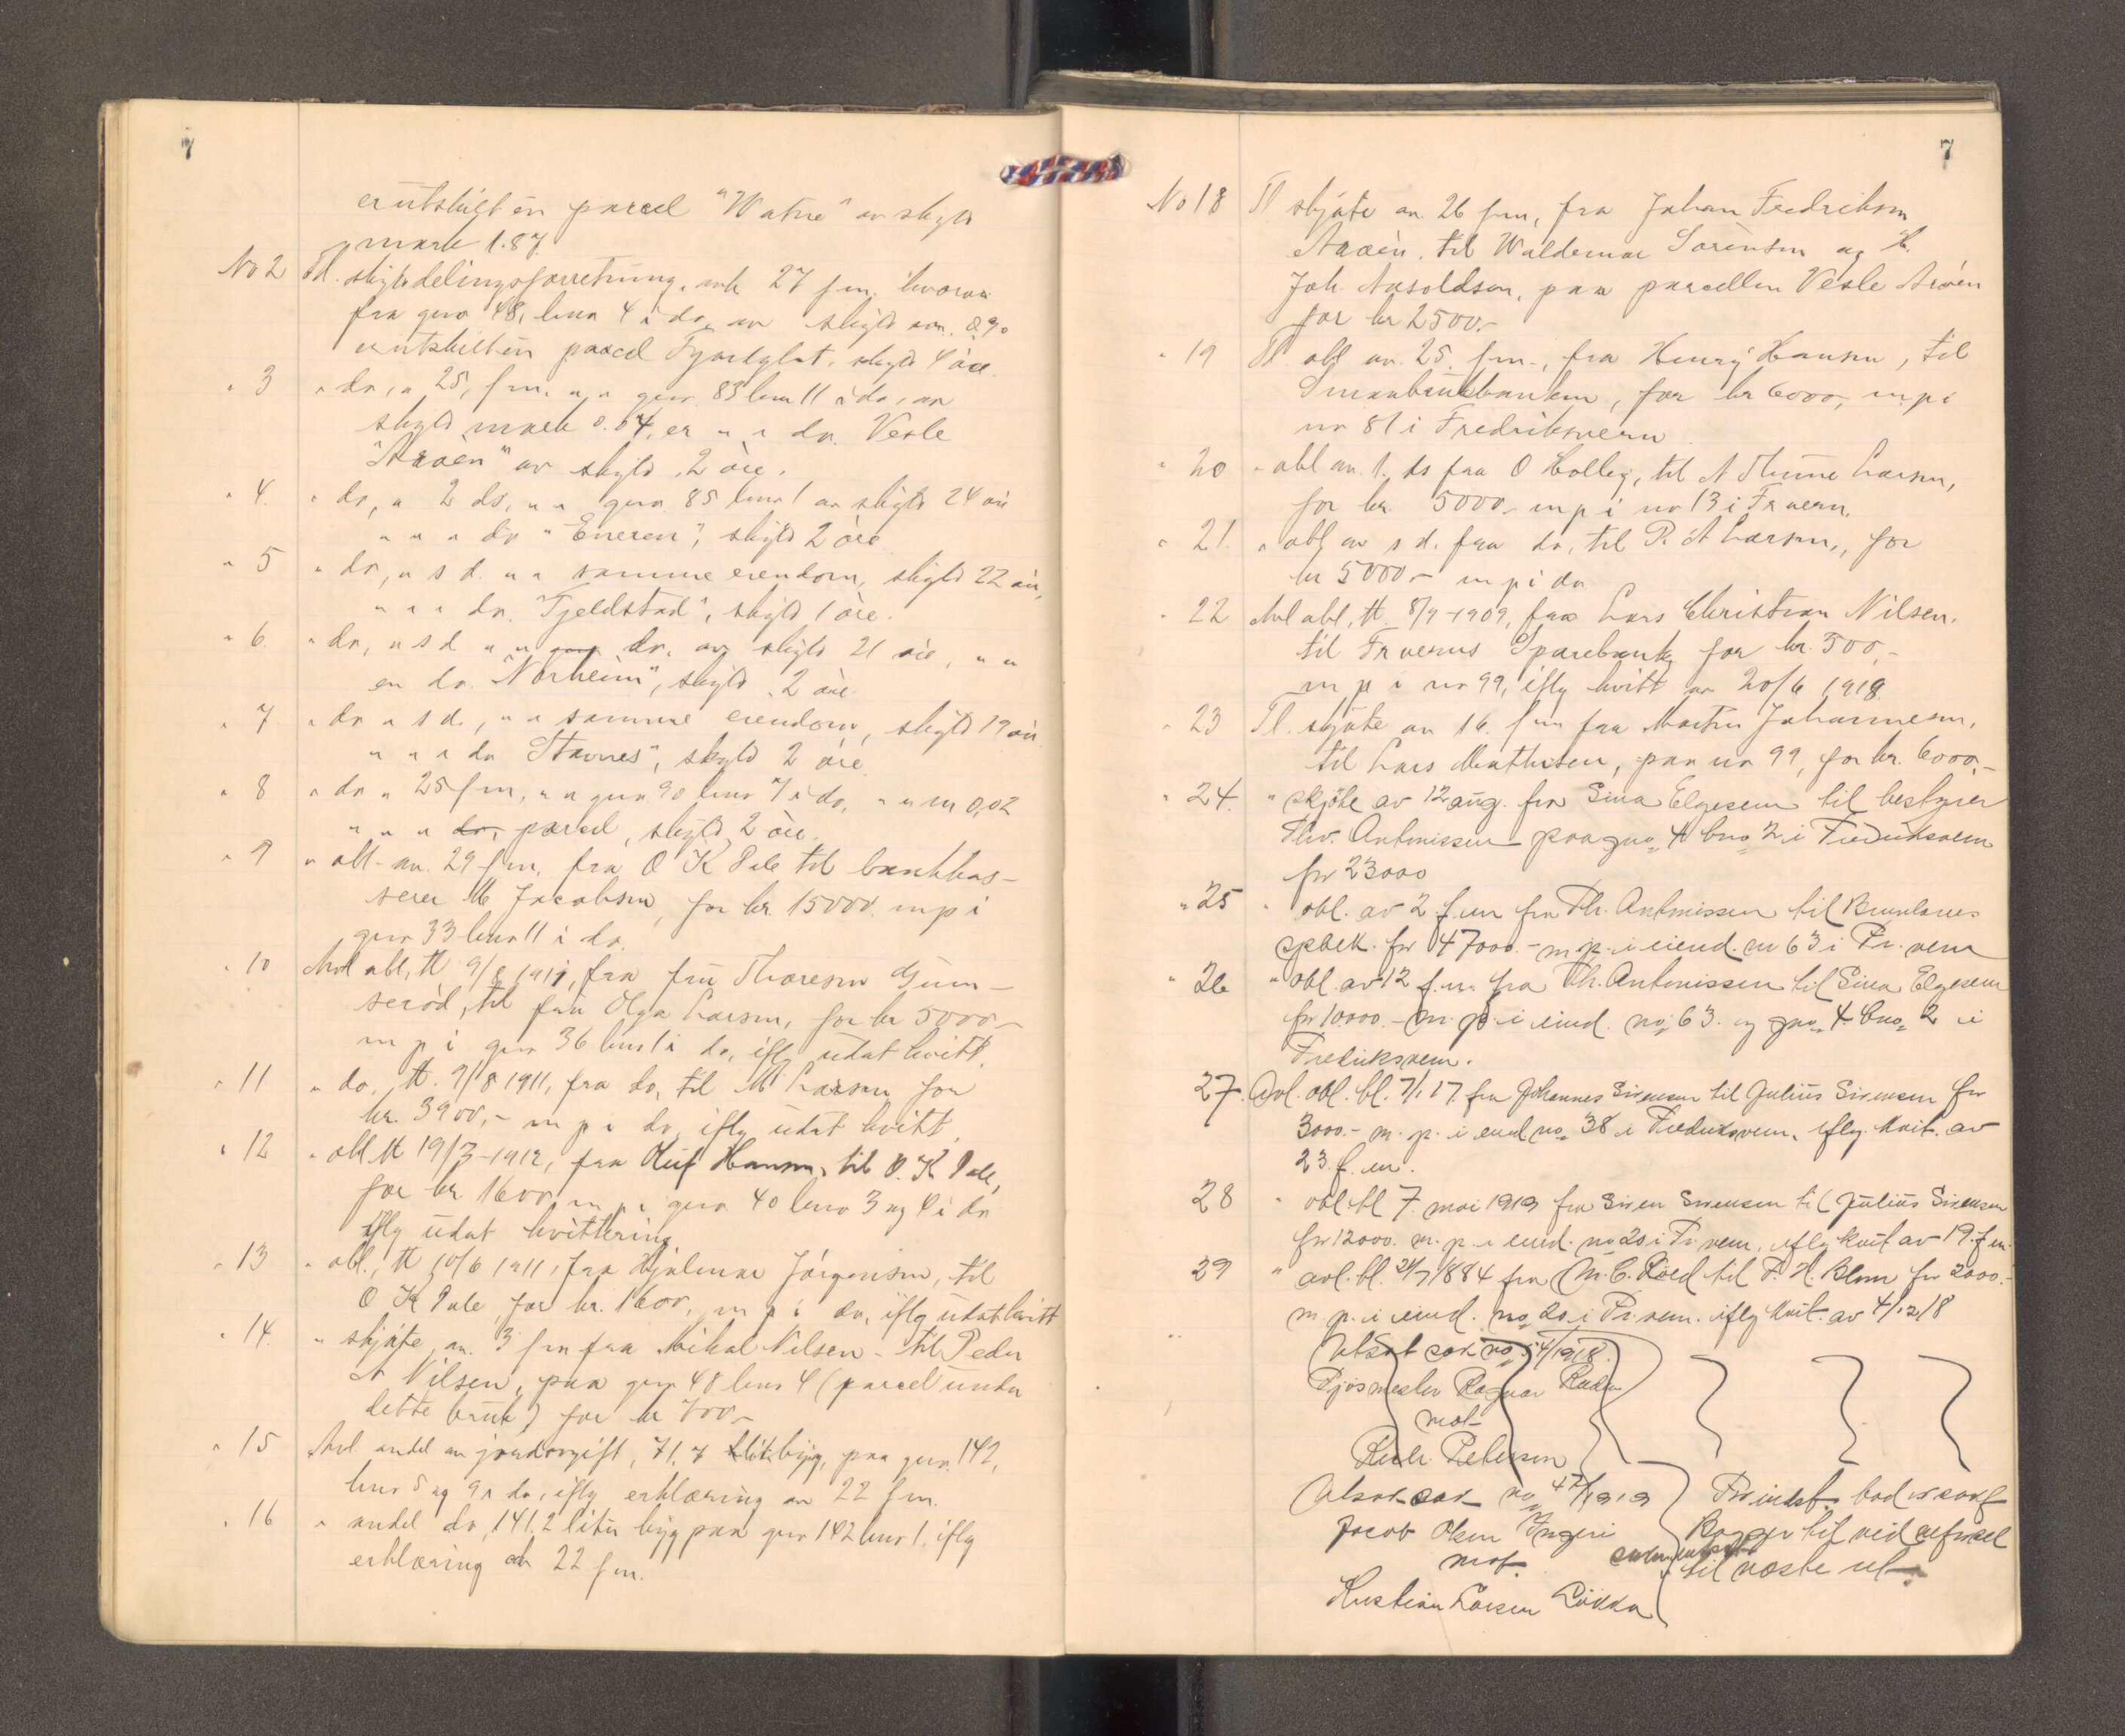 7
er utskilt en parcel "Watne" av skyld
mark 1.87.
No 2 Tl. skylddelingsforretning, avh 27 f m. hvorav
fra gno 48, bno 4 i do, av skyld mrk. 0.90
er utskilt en parcel Fjordgløt, skyld 4 øre.
" 3 " do, " 25, f m. " " gno 83 bno 11 i do, av
skyld mark 0.64, er " " do. Vesle
"Arøen" av skyld 2 øre.
" 4. " do, " 2 ds, " " gno 85 bno 1 av skyld 24 øre
" " " do "Eneren", skyld 2 øre
" 5 " do, " s d. " " samme eiendom, skyld 22 øre,
" " " do. "Fjeldstad", skyld 1 øre.
" 6. " do, " s d " " do. av skyld 21 øre, " "
en do. "Norheim", skyld 2 øre.
" 7 " do " s d., " " samme eiendom, skyld 19 øre
" " " do Stavnes", skyld 2 øre
" 8 " do " 25 f m, " " gno 90 bno 7 i do, " " m 0,02
" " " do, parcel, skyld 2 øre.
" 9 " obl. av. 29 f m, fra O K Pale til bankkas-
serer M Jacobsen, for kr. 15000. m p i
gno 33 bno 11 i do.
" 10 Avl obl, tl 9/8 1911, fra fru Thoresen Gum-
serød, til fru Olga Larsen, for kr 5000.-
m p i gno 36 bno 1 i do, iflg udat kvitt.
" 11 " do, tl. 9/8 1911, fra do, til M Larsen for
kr. 3900,- m p i do, iflg udat kvitt.
" 12 " obl tl 19/3-1912, fra Oluf Hansen, til O. K Pale,
for kr 1600, m p i gno 40 bno 3 og 4 i do
iflg udat kvittering
" 13 " obl., tl 10/6 1911, fra Hjalmar Jörgensen, til
O K Pale, for kr. 1600, m p i do, iflg udat kvitt
" 14. " skjøte av. 3 f m fra Mikal Nilsen - til Peder
A Nilsen, paa gno 48 bno 4 (parcel under
dette bruk) for kr 700.-
" 15 Avl andel av jordavgift, 71,7 byg, paa gno. 142,
bno 5 og 9 i do, iflg erklæring av 22 f m.
" 16 " andel do, 141,2 liter byg paa gno 142 bno 1, iflg
erklæring av 22 f m.
7
No 18 Tl skjøte av 26 f m, fra Johan Fredriksen
Arøen, til Waldemar Sørensen og K.
Joh Aasoldsen, paa parcellen Vesle Arøen
for kr 2500.-
" 19 Tl. obl av 25. f m., fra Henry Hansen, til
Smaabrukbanken, for kr 6000, m p i
no 81 i Fredriksvern
" 20 " obl av. 1. ds fra O Holley, til A Thune Larsen,
for kr. 5000.- m p i no 13 i Fr vern.
" 21. " obl av s d. fra do, til R A Larsen, for
kr 5000.- m p i do
" 22 Avl obl, tl. 8/9-1909, fra Lars Christian Nilsen.
til Fr verns Sparebank, for kr. 500,-
m p i no 99, iflg kvitt av 20/6 1918.
" 23 Tl. skjøte av 16. f m fra Martin Johannesen,
til Lars Mathisen, paa no 99, for kr. 6000,-
" 24. " skjøte av 12 aug. fra Sina Elgesem til bestyrer
Thv. Antonissen paa gno 4 bno 2 i Fredriksvern
for 23000
" 25 " obl. av 2 f.m fra Th. Antonissen til Brunlanes
spbk. for 47000.- m. p. i eiend. no 63 i Fr. vern
" 26 " obl. av 12 f.m. fra Th. Antonissen til Sina Elgesem
for 10.000.- m. p. i eiend. no 63. og gno 4 bno 2 i
Fredriksvern.
27. Avl. obl. bl. 7/1 17 fra Johannes Sörensen til Julius Sörensen for
3000.- m. p. i eiend no 38 i Fredriksvern, iflg. kvit. av
23. f. m.
28 " obl. bl 7 mai 1913 fra Sören Sörensen til Julius Sörensen
for 12000. m. p. i eiend. no 20 i Fr. vern, iflg kvit av 19. f m.
29 " avl. bl. 21/7 1884 fra M. C. Röed til F. H. Blom for 2000.-
m p. i eiend. no 20 i Fr. vern. iflg kvit. av 4/12 18
Utsat sak no 54/1918.
Fjøsmester Ragnar
mot
Petersen
Utsat sak no 47/1919
Jacob Olsen Yngeri
mot.
Kristian Larsen Lökka
til næste